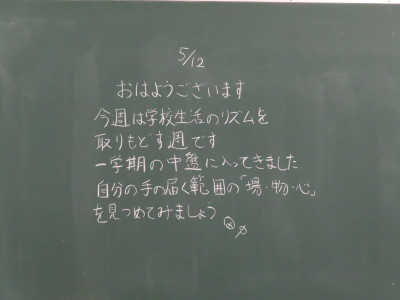 5/12
おはようございます
今週は学校生活のリズムを
取りもどす週です
一学期の中盤に入ってきました
自分の手の届く範囲の「場・物・心」
を見つめてみましょう